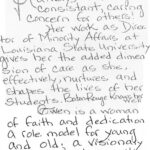 consistant, caring
concern for others!
Her work as Direc
tor of Minority Affairs at
Louisiana State University
gives her the added dimen
sion of care as she,
effectively, nurtures, and
shapes the lives of her
Students.
Gwen is a woman
of faith and dedication
a role model for young
and old; a visionary